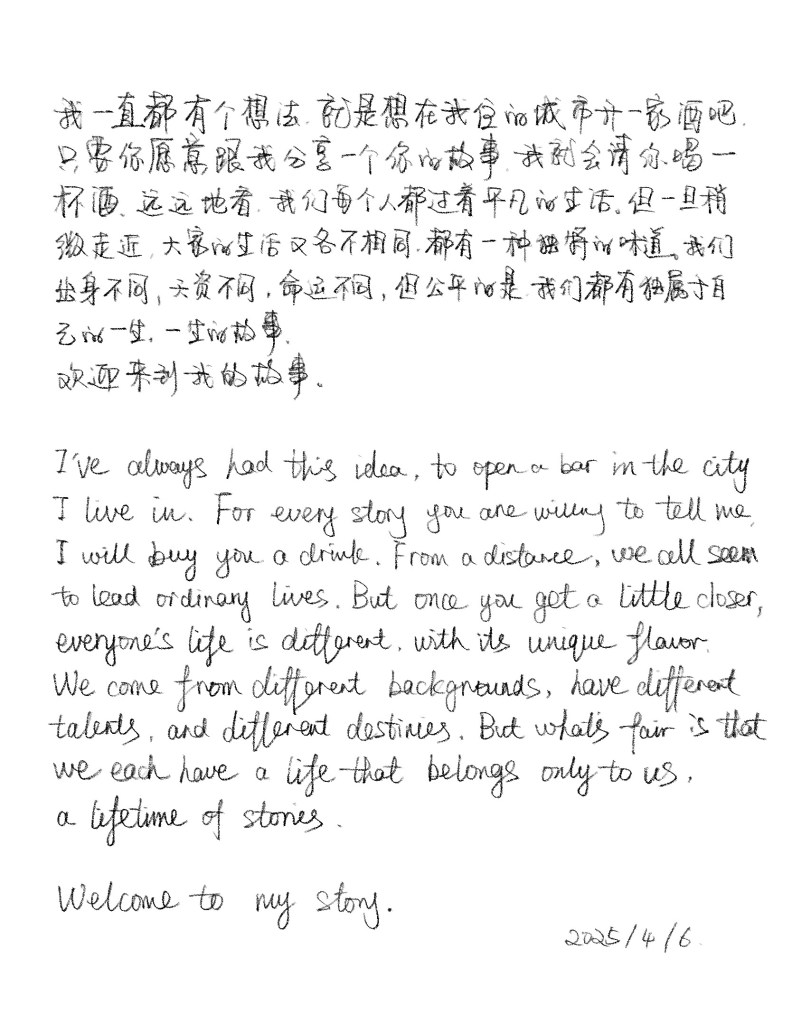 我一直都有个想法，就是想在我住的城市开一家酒吧，
只要你愿意跟我分享一个你的故事，我就会请你喝一
杯酒。远远地看，我们每个人都过着平凡的生活。但一旦稍
微走近，大家的生活又各不相同，都有一种独特的味道。我们
出身不同，天资不同，命运不同，但公平的是，我们都有独属于自
己的一生，一生的故事。
欢迎来到我的故事。
I've always had this idea, to open a bar in the city
I live in. For every story you are willing to tell me,
I will buy you a drink. From a distance, we all seem
to lead ordinary lives. But once you get a little closer,
everyone's life is different, with its unique flavor.
We come from different backgrounds, have different
talents, and different destinies. But what's fair is that
we each have a life that belongs only to us,
a lifetime of stories.
Welcome to my story.
2025/4/6.